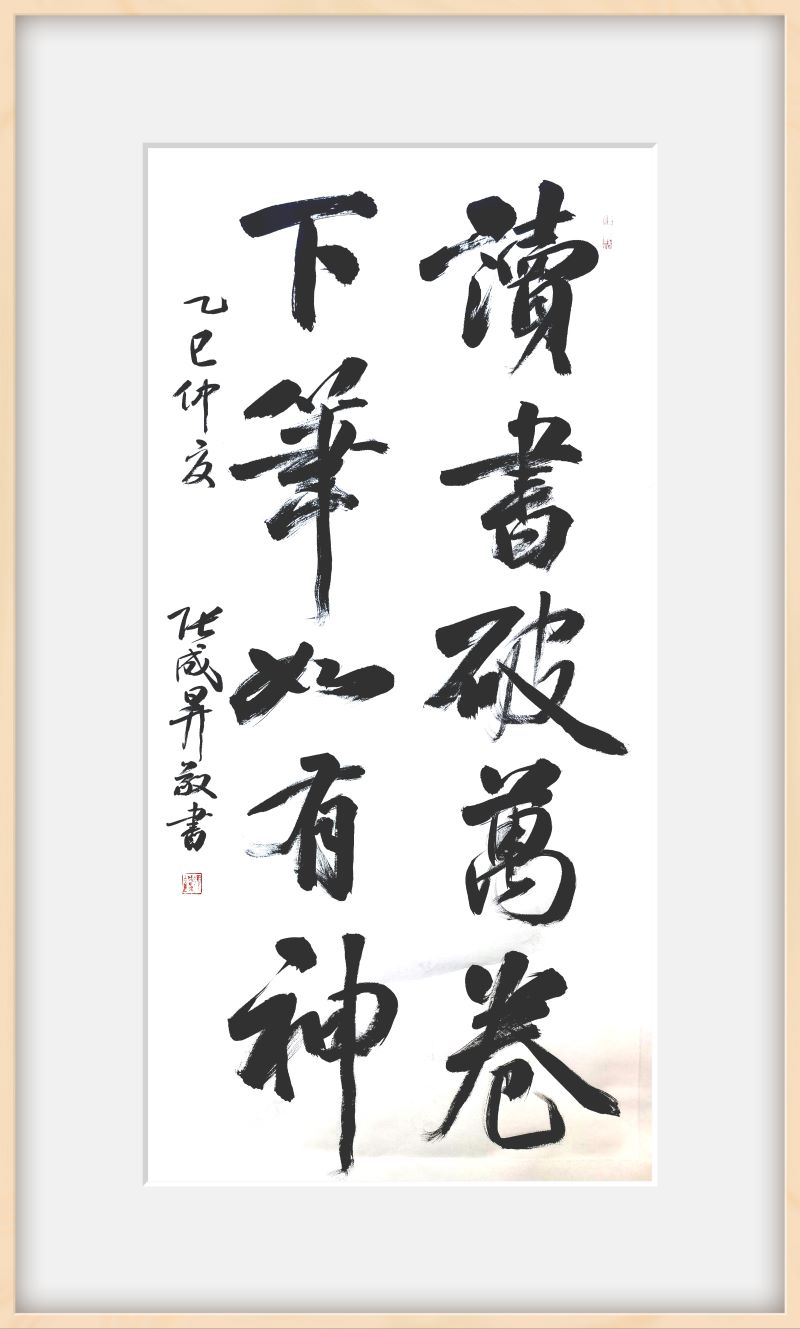 讀書破萬卷
下筆如有神
乙巳仲夏
張成昇敬書